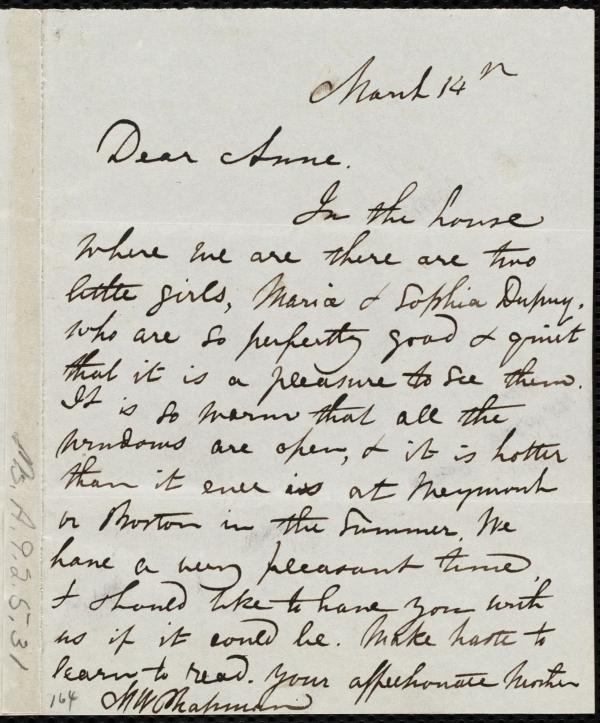 March 14th
Dear Anne.
In the house
where we are there are two
little girls, Maria & Sophia Dupuy.
who are so perfectly good & quiet
that it is a pleasure to see them.
It is so warm that all the
windows are open, & it is hotter
than it ever is at Weymouth
or Boston in the Summer. We
have a very pleasant time,
I should like to have you with
us if it could be. Make haste to
learn to read. Your affectionate Mother
M W Chapman
164
Ms A.9.2 5.31